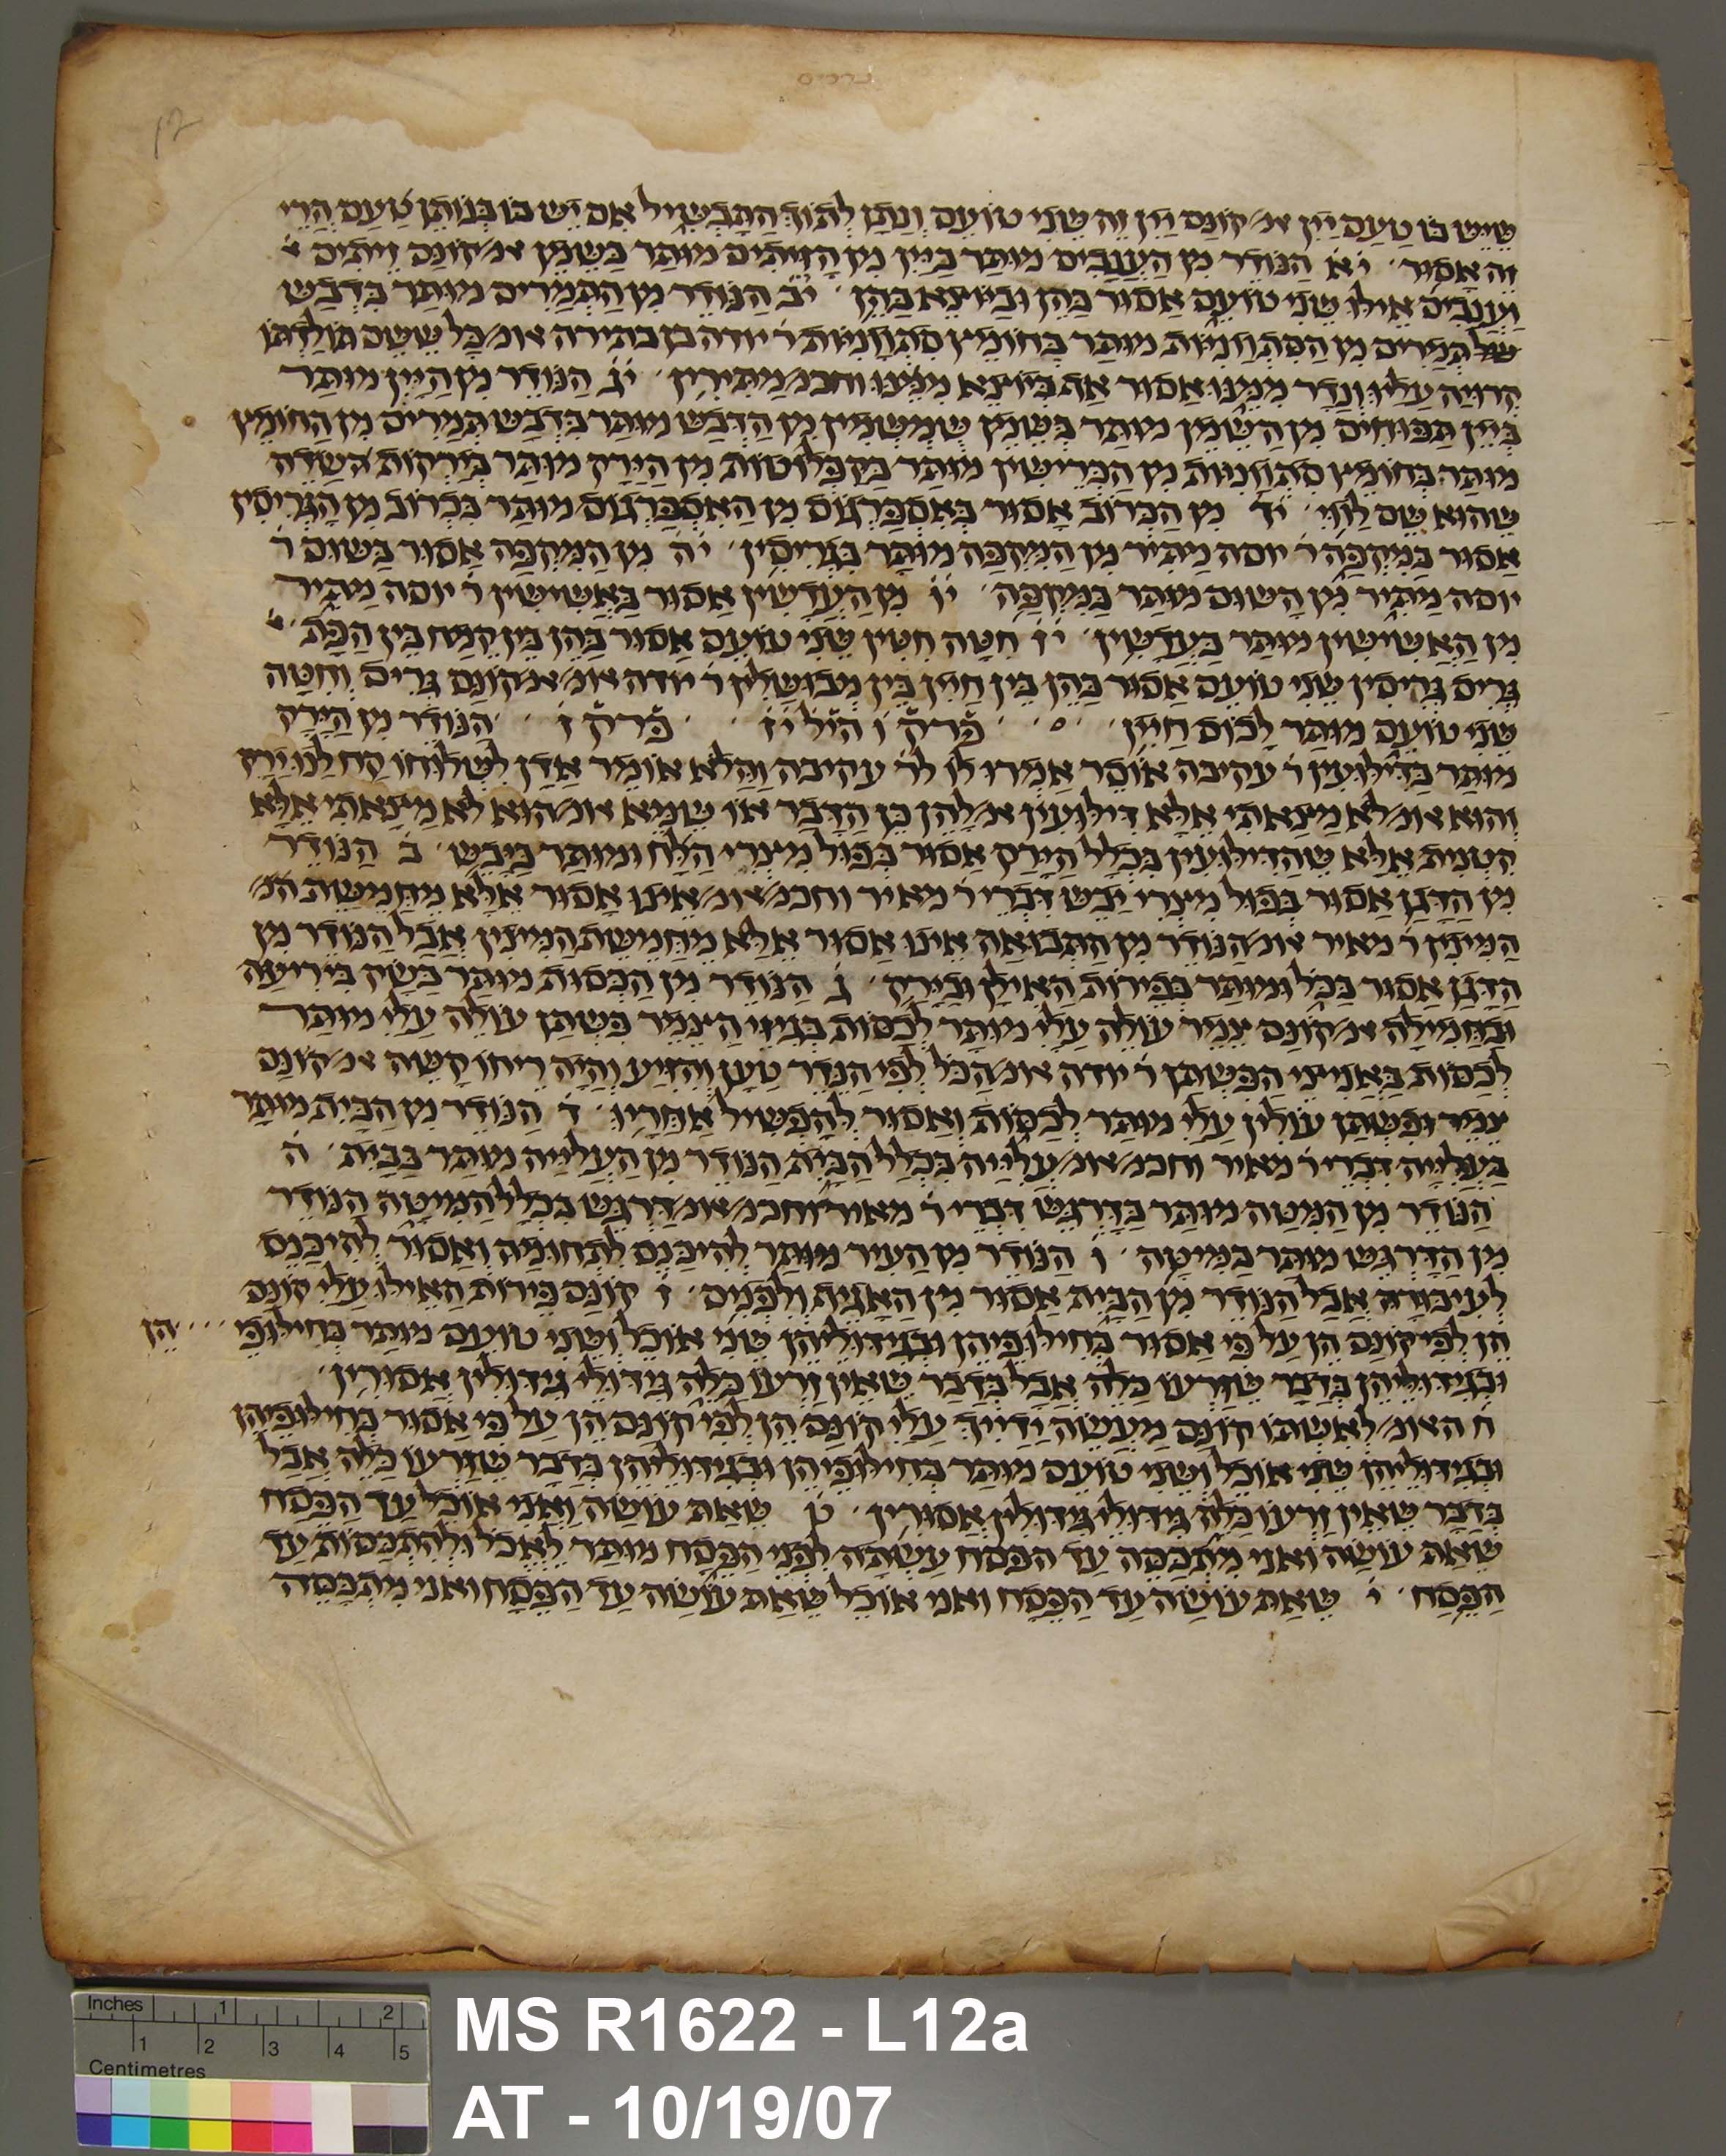 נדרים
12
שיש בו טעם יין אמ׳ קונם יין זה שני טועם ונתן לתוך התבשיל אם יש בו בנותן טעם הרי
זה אסור׳ יא הנודר מן הענבים מותר ביין מן הזיתים מותר בשמן אמ׳ קונם זיתים
וענבים אילו שני טועם אסור בהן וביוצא בהן׳ יב הנודר מן התמרים מותר בדבש
שלתמרים מן הסתוניות מותר בחומץ סתוניות ר׳ יודה בן בתירה אומ׳ כל ששם תולדתו
קרויה עליו ונדר ממנו אסור אף ביוצא ממנו וחכמ׳ מתירין׳ יג הנודר מן היין מותר
ביין תפוחים מן השמן מותר בשמן שמשמין מן הדבש מותר בדבש תמרים מן החומץ
מותר בחומץ סתוניות מן הכרישין מותר בקפלוטות מן הירק מותר בירקות השדה
שהוא שם לווי׳ יד מן הכרוב אסור באספרגוס מן האספרגוס מותר בכרוב מן הגריסין
אסור במקפה ר׳ יוסה מתיר מן המקפה מותר בגריסין׳ יה מן המקפה אסור בשום ר׳
יוסה מתיר מן השום מותר במקפה׳ יו מן העדשין אסור באשישין ר׳ יוסה מתיר
מן האשישין מותר בעדשין׳ יז חטה חטין שני טועם אסור בהן בין קמח בין הפת׳
גריס גריסין שני טועם אסור בהן בין חיין בין מבושלין ר׳ יודה אומ׳ אמ׳ קונם גריס וחטה
שני טועם מותר לכוס חיין׳ פרק׳ ו הל׳ יז׳ פרק׳ ז׳ הנודר מן הירק
מותר בדילועין ר׳ עקיבה אוסר אמרו לו לר׳ עקיבה והלא אומר אדן לשלוחו קח לנו ירק
והוא אומ׳ לא מצאתי אלא דילועין אמ׳ להן כן הדבר או שמא אומ׳ הוא לא מצאתי אלא
קטנית אלא שהדילועין בכלל הירק אסור בפול מצרי הלח ומותר ביבש׳ ב הנודר
מן הדגן אסור בפול מצרי יבש דברי ר׳ מאיר וחכמ׳ אומ׳ אינו אסור אלא מחמשת המ׳
המינין ר׳ מאיר אומ׳ הנודר מן התבואה אינו אסור אלא מחמשת המינין אבל הנודר מן
הדגן אסור בכל ומותר בפירות האילן ובירק׳ ג הנודר מן הכסות מותר בשק ביריעה
ובחמילה אמ׳ קונם צמר עולה עלי מותר לכסות בגיזי הצמר פשתן עולה עלי מותר
לכסות באניצי הפשתן ר׳ יודה אומ׳ הכל לפי הנדר טען והזיע והיה ריחו קשה אמ׳ קונם
צמר ופשתן עולין עלי מותר לכסות ואסור להפשיל אחריו׳ ד הנודר מן הבית מותר
בעלייה דברי ר׳ מאיר וחכמ׳ אומ׳ עלייה בכלל הבית הנודר מן העלייה מותר בבית׳ ה
הנודר מן המטה מותר בדרגש דברי ר׳ מאיר וחכמ׳ אומ׳ דרגש בכלל המיטה הנודר
מן הדרגש מותר במיטה׳ ו הנודר מן העיר מותר להיכנס לתחומה ואסור להיכנס
לעיבורה אבל הנודר מן הבית אסור מן האגף ולפנים׳ ז קונם פירות האילו עלי קונם
הן לפי קונם הן על פי אסור בחילופיהן ובגידוליהן שני אוכל ושני טועם מותר בחילופי הן
ובגידוליהן בדבר שזרעו כלה אבל בדבר שאין זרעו כלה גידולי גידולין אסורין׳
ח האומ׳ לאשתו קונם מעשה ידייך עלי קונם הן לפי קונם הן על פי אסור בחילופיהן
ובגידוליהן שני אוכל ושני טועם מותר בחילופיהן ובגידוליהן בדבר שזרעו כלה אבל
בדבר שאין זרעו כלה גידולי גידולין אסורין׳ ט שאת עושה ואני אוכל עד הפסח
שאת עושה ואני מתכסה עד הפסח עשתה לפני הפסח מותר לאכל ולהתכסות עד
הפסח׳ י שאת עושה עד הפסח ואני אוכל שאת עושה עד הפסח ואני מתכסה
Inches 1 2
1 2 3 4 5
Centimetres
MS R1622 - L12a
AT - 10/19/07